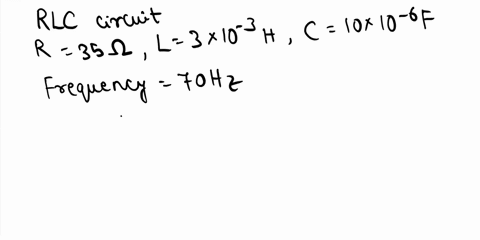 RLC circuit
R = 35Ω, L = 3 × 10⁻³ H, C = 10 × 10⁻⁶ F
Frequency = 70Hz